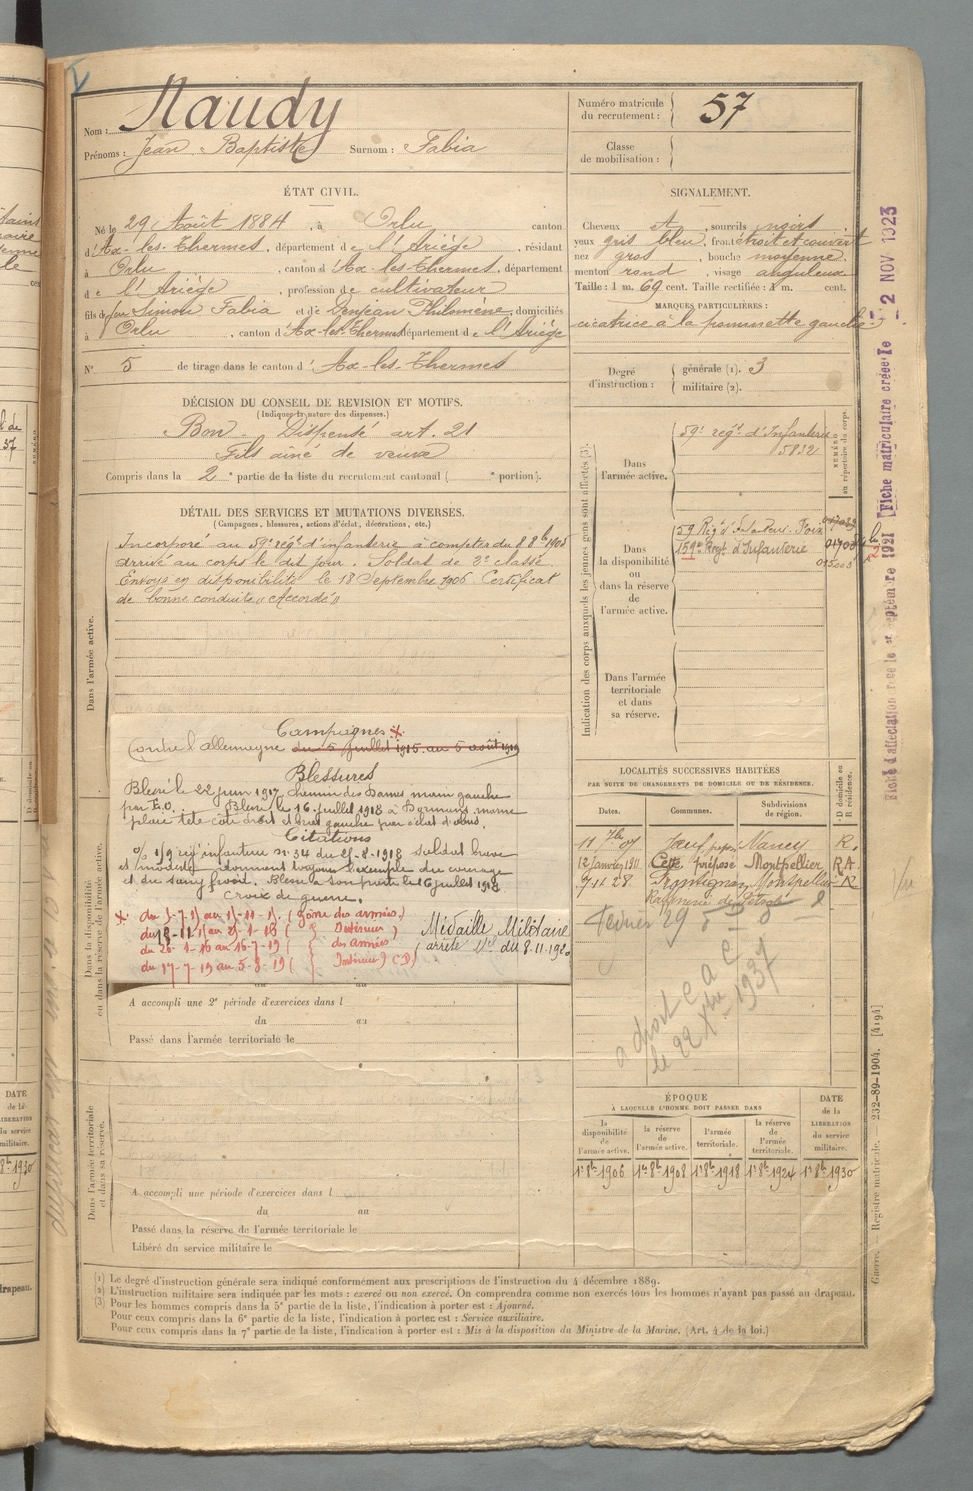 Nom : Naudy
Prénoms : Jean Baptiste Surnom : Fabia
Numéro matricule du recrutement : 57
Classe de mobilisation :
ÉTAT CIVIL.
Né le 29 Août 1884, à Orlu canton
d'Ax-les-Thermes, département de l'Ariège, résidant
à Orlu, canton d'Ax-les-Thermes, département
de l'Ariège, profession de cultivateur
fils de feu Simon Fabia et de Denjean Philomène, domiciliés
à Orlu, canton d'Ax-les-Thermes département de l'Ariège
N° 5 de tirage dans le canton d'Ax-les-Thermes
SIGNALEMENT.
Cheveux et, sourcils noirs
yeux gris bleu, front étroit et couvert
nez gros, bouche moyenne,
menton rond, visage anguleux
Taille : 1 m. 69 cent. Taille rectifiée : 1 m. cent.
MARQUES PARTICULIÈRES :
cicatrice à la pommette gauche.
Degré d'instruction : générale (1). 3
militaire (2).
DÉCISION DU CONSEIL DE REVISION ET MOTIFS.
(Indiquer la nature des dispenses.)
Bon. Dispensé art. 21
Fils aîné de veuve
Compris dans la 2e partie de la liste du recrutement cantonal ( e portion).
DÉTAIL DES SERVICES ET MUTATIONS DIVERSES.
(Campagnes, blessures, actions d'éclat, décorations, etc.)
Dans l'armée active.
Incorporé au 59e regt d'infanterie à compter du 8 8bre 1905
arrivé au corps le dit jour. Soldat de 2e classe.
Envoyé en disponibilité le 18 Septembre 1906. Certificat
de bonne conduite « Accordé »
Dans la disponibilité ou dans la réserve de l'armée active.
Campagnes x
Contre l'allemagne du 5 juillet 1915 au 5 août 1919
Blessures
Blessé le 22 juin 1917 chemin des Dames main gauche
par E.O. Blessé le 16 juillet 1918 à Dormans marne
plaie tête côté droit et bras gauche par éclat d'obus.
Citations
o/ 159 reg infanterie n° 34 du 25-8-1918 soldat brave
et modeste donnant toujours l'exemple du courage
et du sang froid. Blessé à son poste le 16 juillet 1918
Croix de guerre.
x du 5-7-15 au 15-11-15 (zône des armées)
du 18-11-15 au 25-1-16 ( Intérieur )
du 26-1-16 au 16-7-19 ( des armées
du 17-7-19 au 5-8-19 ( Intérieur) CD)
Médaille Militaire
(arrêté Mel du 8.11.1920
A accompli une 2e période d'exercices dans l
du au
Passé dans l'armée territoriale le
Dans l'armée territoriale et dans sa réserve.
A accompli une période d'exercices dans l
du au
Passé dans la réserve de l'armée territoriale le
Libéré du service militaire le
Indication des corps auxquels les jeunes gens sont affectés (3).
NUMÉRO au répertoire du corps.
Dans l'armée active.
59e regt d'Infanterie
5832
Dans la disponibilité ou dans la réserve de l'armée active.
59 Régt d'Infanterie Foix
159e Regt d'Infanterie
Dans l'armée territoriale et dans sa réserve.
LOCALITÉS SUCCESSIVES HABITÉES
PAR SUITE DE CHANGEMENTS DE DOMICILE OU DE RÉSIDENCE.
Dates. Communes. Subdivisions de région. D domicile ou R résidence.
11 7bre 07 Joeuf Nancy R.
12 Janvier 1911 Cette préposé Montpellier RA
7-11 28 Frontignan Montpellier R
Raffinerie de Pétrole
Février 29
a droit
le 22 Xbre 1937
ÉPOQUE
À LAQUELLE L'HOMME DOIT PASSER DANS
la disponibilité de l'armée active. la réserve de l'armée active. l'armée territoriale. la réserve de l'armée territoriale.
DATE de la LIBÉRATION du service militaire.
1er 8bre 1906 1er 8bre 1908 1er 8bre 1918 1er 8bre 1924 1er 8bre 1930
(1) Le degré d'instruction générale sera indiqué conformément aux prescriptions de l'instruction du 4 décembre 1889.
(2) L'instruction militaire sera indiquée par les mots : exercé ou non exercé. On comprendra comme non exercés tous les hommes n'ayant pas passé au drapeau.
(3) Pour les hommes compris dans la 5e partie de la liste, l'indication à porter est : Ajourné.
Pour ceux compris dans la 6e partie de la liste, l'indication à porter est : Service auxiliaire.
Pour ceux compris dans la 7e partie de la liste, l'indication à porter est : Mis à la disposition du Ministre de la Marine. (Art. 4 de la loi.)
Fiche matriculaire créée le 2 NOV 1923
Fiche d'affectation créée le septembre 1921
Guerre. — Registre matricule. — 232-89-1904. [4194]
DATE
de la
LIBÉRATION
du service
militaire.
8bre 1930
drapeau.